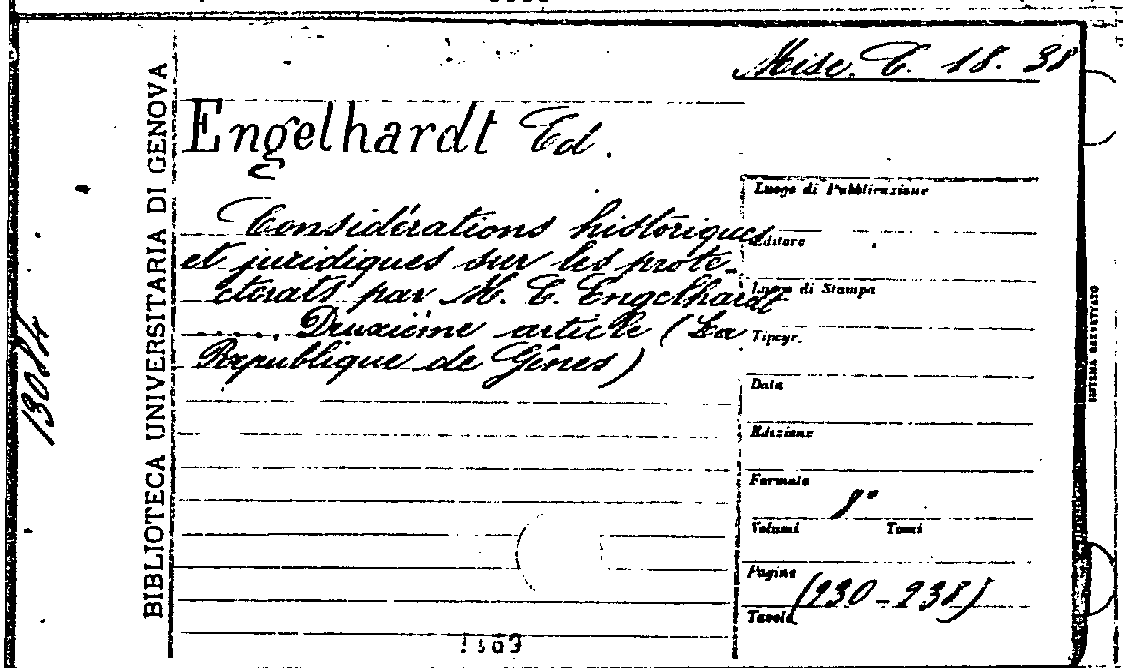 Misc. C. 18. 38
Engelhardt Ed.
Considérations historiques
et juridiques sur les prote-
ctorats par M. E. Engelhardt
..... Deuxième article (La
Republique de Gênes)
BIBLIOTECA UNIVERSITARIA DI GENOVA
Luogo di Pubblicazione
Editore
Luogo di Stampa
Tipogr.
Data
Edizione
Formato
8°
Volumi Tomi
Pagine
(230-238)
Tavole